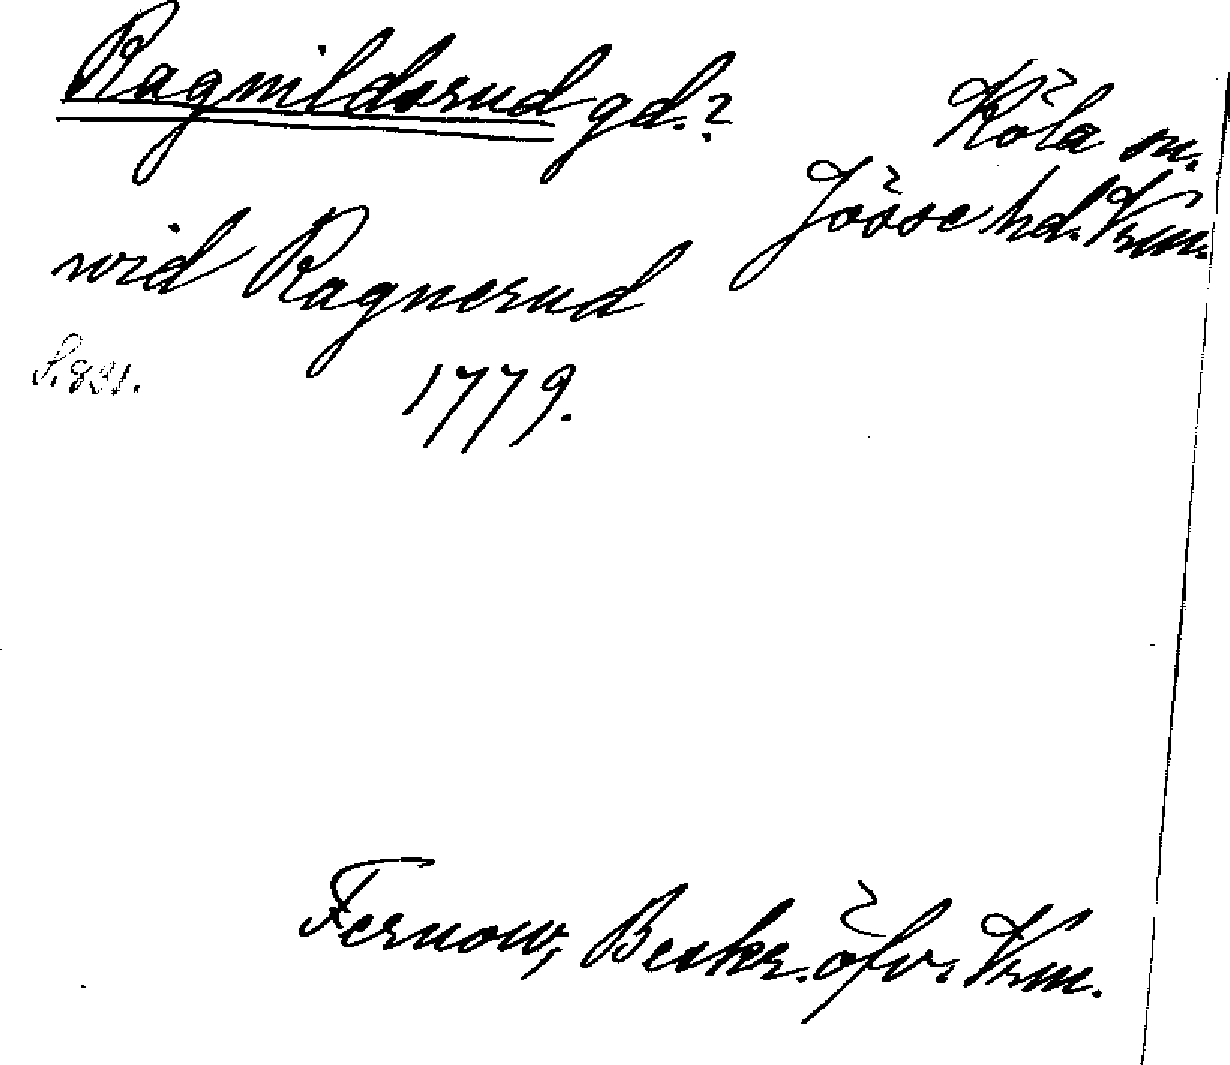 Ragnildsrud gd.?
Köla sn.
Jösse hd. Vrm.
wid Ragnerud
S. 831.
1779.
Fernow, Beskr. öfv. Vrm.